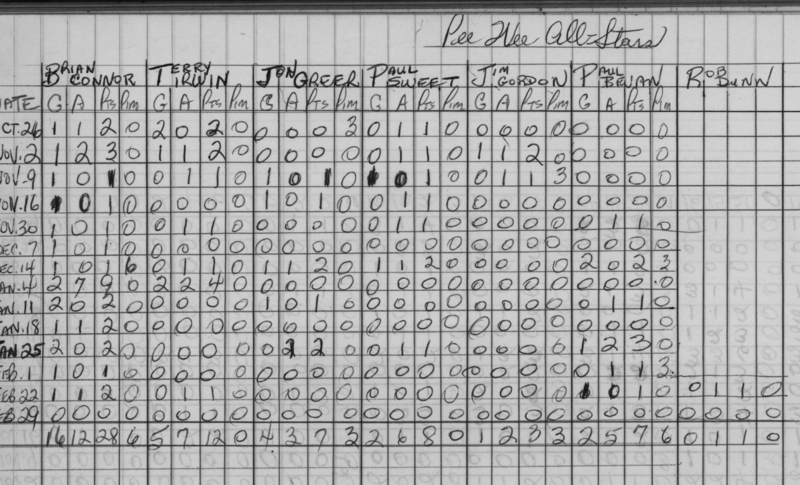 Pee Wee All-Stars
BRIAN CONNOR TERRY IRWIN JON GREER PAUL SWEET JIM GORDON PAUL BRYAN ROB DUNN
ATE G A Pts Pim G A Pts Pim G A Pts Pim G A Pts Pim G A Pts Pim G A Pts Pim
CT.26 1 1 2 0 2 0 2 0 0 0 0 3 0 1 1 0 0 0 0 0 0 0 0 0
NOV.2 1 2 3 0 1 1 2 0 0 0 0 0 0 1 1 0 1 1 2 0 0 0 0 0
NOV.9 1 0 1 0 0 1 1 0 1 0 1 0 1 0 1 0 0 1 1 3 0 0 0 0
NOV.16 1 0 1 0 0 0 0 0 1 0 1 0 0 1 1 0 0 0 0 0 0 0 0 0
OV.30 1 0 1 0 0 1 1 0 0 0 0 0 0 1 1 0 0 0 0 0 0 1 1 0
DEC.7 1 0 1 0 0 0 0 0 0 0 0 0 0 0 0 0 0 0 0 0 0 0 0 0
EC.14 1 0 1 6 0 1 1 0 1 1 2 0 1 1 2 0 0 0 0 0 2 0 2 3
AN.4 2 7 9 0 2 2 4 0 0 0 0 0 0 0 0 0 0 0 0 0 0 0 0 0
AN.11 2 0 2 0 0 0 0 0 1 0 1 0 0 0 0 0 0 0 0 0 0 1 1 0
AN.18 1 1 2 0 0 0 0 0 0 0 0 0 0 0 0 0 0 0 0 0 0 0 0 0
AN 25 2 0 2 0 0 0 0 0 0 2 2 0 0 1 1 0 0 0 0 0 1 2 3 0
FEB.1 1 0 1 0 0 0 0 0 0 0 0 0 0 0 0 0 0 0 0 0 0 1 1 3
FEB.22 1 1 2 0 0 1 1 0 0 0 0 0 0 0 0 0 0 0 0 0 1 0 1 0 0 1 1 0
EB.29 0 0 0 0 0 0 0 0 0 0 0 0 0 0 0 0 0 0 0 0 0 0 0 0 0 0 0 0
16 12 28 6 5 7 12 0 4 3 7 3 2 6 8 0 1 2 3 3 2 5 7 6 0 1 1 0